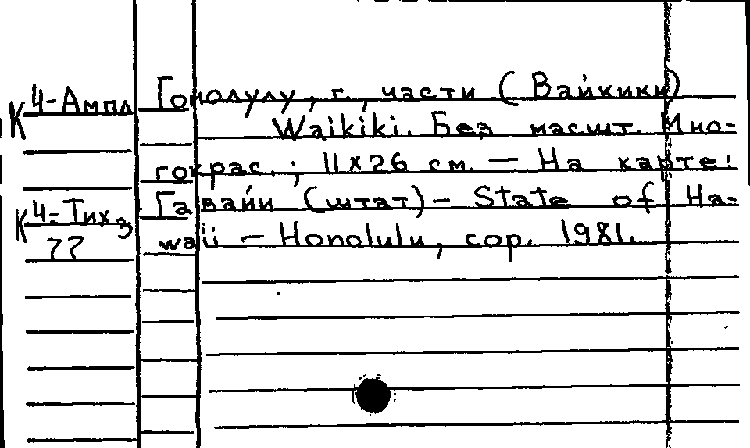 К 4-Ампл Гонолулу, г., части (Вайкики)
Waikiki. Без масшт. Мно-
гокрас.; 11×26 см. — На карте:
К 4-Тих 3 Гавайи (штат) - State of Ha-
77 waii — Honolulu, cop. 1981.